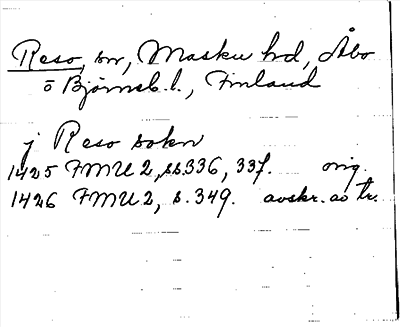 Reso, sn, Masku hd, Åbo
o Bjørnsb. l., Finland
j Reso sokn
1425 FMU 2, ss. 336, 337. orig.
1426 FMU 2, s. 349. avskr. av tr.